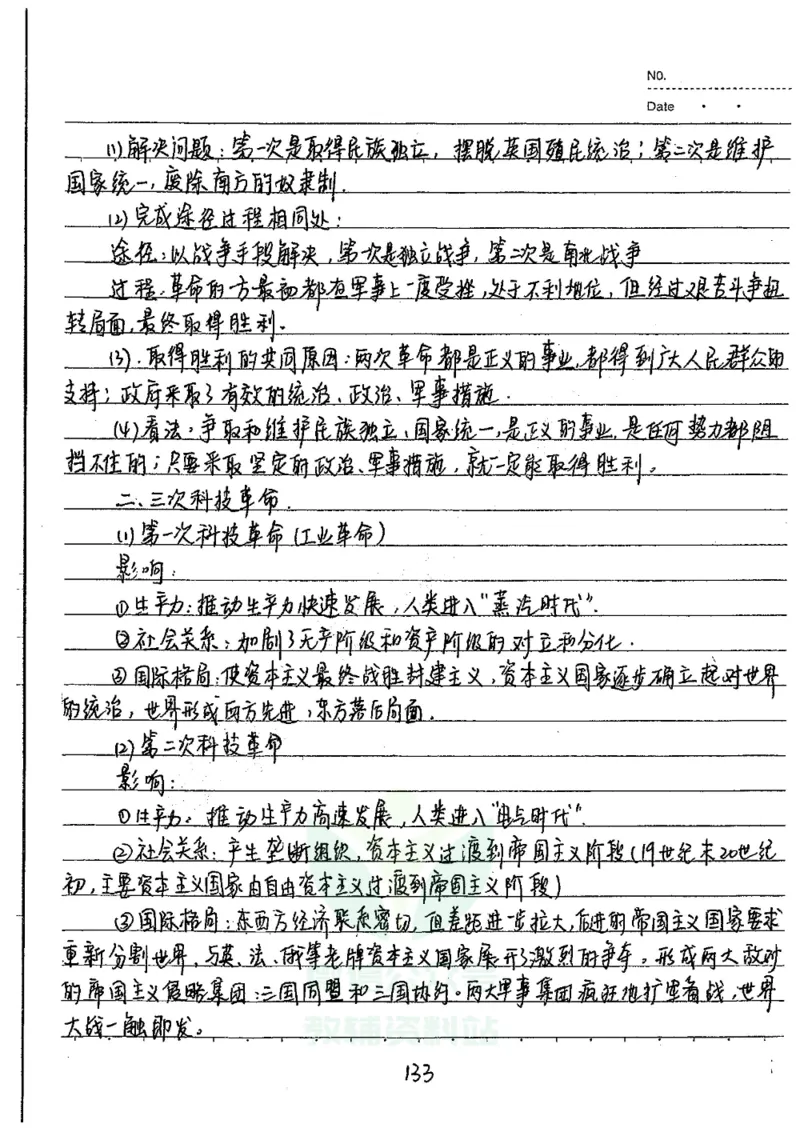 NO.
Date
(1)解决问题:第一次是取得民族独立,摆脱英国殖民统治;第二次是维护
国家统一,废除南方的奴隶制.
(2)完成途径过程相同处:
途径:以战争手段解决,第一次是独立战争,第二次是南北战争
过程:革命的一方最初都在军事上一度受挫,处于不利地位,但经过艰苦斗争扭
转局面,最终取得胜利。
(3).取得胜利的共同原因:两次革命都是正义的事业,都得到广大人民群众的
支持;政府采取了有效的统治、政治、军事措施.
(4)看法:争取和维护民族独立、国家统一,是正义的事业,是任何势力都阻
挡不住的;只要采取坚定的政治、军事措施,就一定能取得胜利。
二、三次科技革命.
(1)第一次科技革命(工业革命)
影响:
①生产力:推动生产力快速发展,人类进入"蒸汽时代".
②社会关系:加剧了无产阶级和资产阶级的对立和分化.
③国际格局:使资本主义最终战胜封建主义,资本主义国家逐步确立起对世界
的统治,世界形成西方先进,东方落后局面.
(2)第二次科技革命
影响:
①生产力:推动生产力高速发展,人类进入"电气时代".
②社会关系:产生垄断组织,资本主义过渡到帝国主义阶段(19世纪末20世纪
初,主要资本主义国家由自由资本主义过渡到帝国主义阶段)
③国际格局:东西方经济联系密切,但差距进一步拉大,后进的帝国主义国家要求
重新分割世界,与英、法、俄等老牌资本主义国家展开了激烈的争夺。形成两大敌对
的帝国主义侵略集团:三国同盟和三国协约。两大军事集团疯狂地扩军备战,世界
大战一触即发。
教辅资料站
133